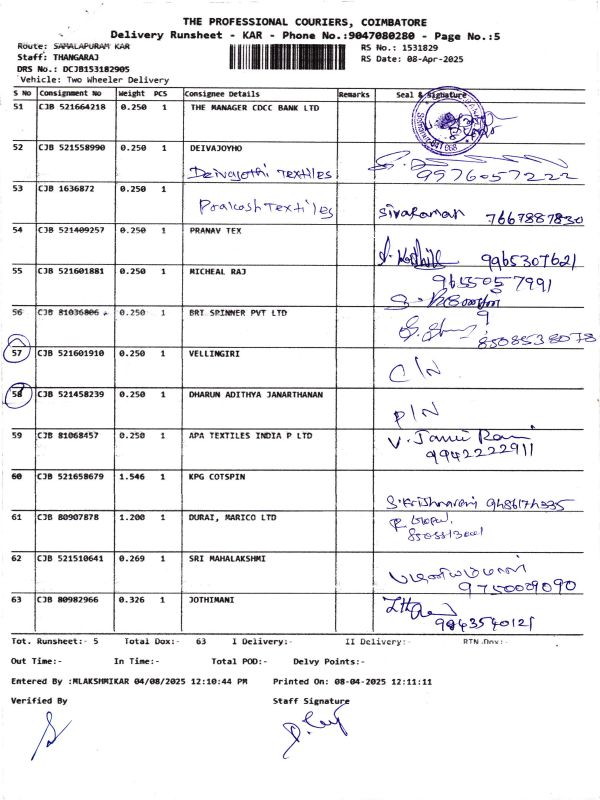 THE PROFESSIONAL COURIERS, COIMBATORE
Delivery Runsheet - KAR - Phone No.:9047080280 - Page No.:5
Route: SAMALAPURAM KAR
RS No.: 1531829
Staff: THANGARAJ
RS Date: 08-Apr-2025
DRS No.: DCJB153182905
Vehicle: Two Wheeler Delivery
S No Consignment No Weight PCS Consignee Details Remarks Seal & Signature
51 CJB 521664218 0.250 1 THE MANAGER CDCC BANK LTD
52 CJB 521558990 0.250 1 DEIVAJOYHO
Deivajothi Textiles 9976057222
53 CJB 1636872 0.250 1
Prakash Textiles Sivaraman 7667887830
54 CJB 521409257 0.250 1 PRANAV TEX
9965307621
55 CJB 521601881 0.250 1 MICHEAL RAJ
9655057991
56 CJB 81036806 0.250 1 BRT SPINNER PVT LTD
8508538078
57 CJB 521601910 0.250 1 VELLINGIRI
C/N
58 CJB 521458239 0.250 1 DHARUN ADITHYA JANARTHANAN
P/N
59 CJB 81068457 0.250 1 APA TEXTILES INDIA P LTD
9942222911
60 CJB 521658679 1.546 1 KPG COTSPIN
61 CJB 80907878 1.200 1 DURAI, MARICO LTD
62 CJB 521510641 0.269 1 SRI MAHALAKSHMI
9750009090
63 CJB 80982966 0.326 1 JOTHIMANI
9843540121
Tot. Runsheet:- 5 Total Dox:- 63 I Delivery:- II Delivery:- RTN Dox:-
Out Time:- In Time:- Total POD:- Delvy Points:-
Entered By :MLAKSHMIKAR 04/08/2025 12:10:44 PM Printed On: 08-04-2025 12:11:11
Verified By Staff Signature